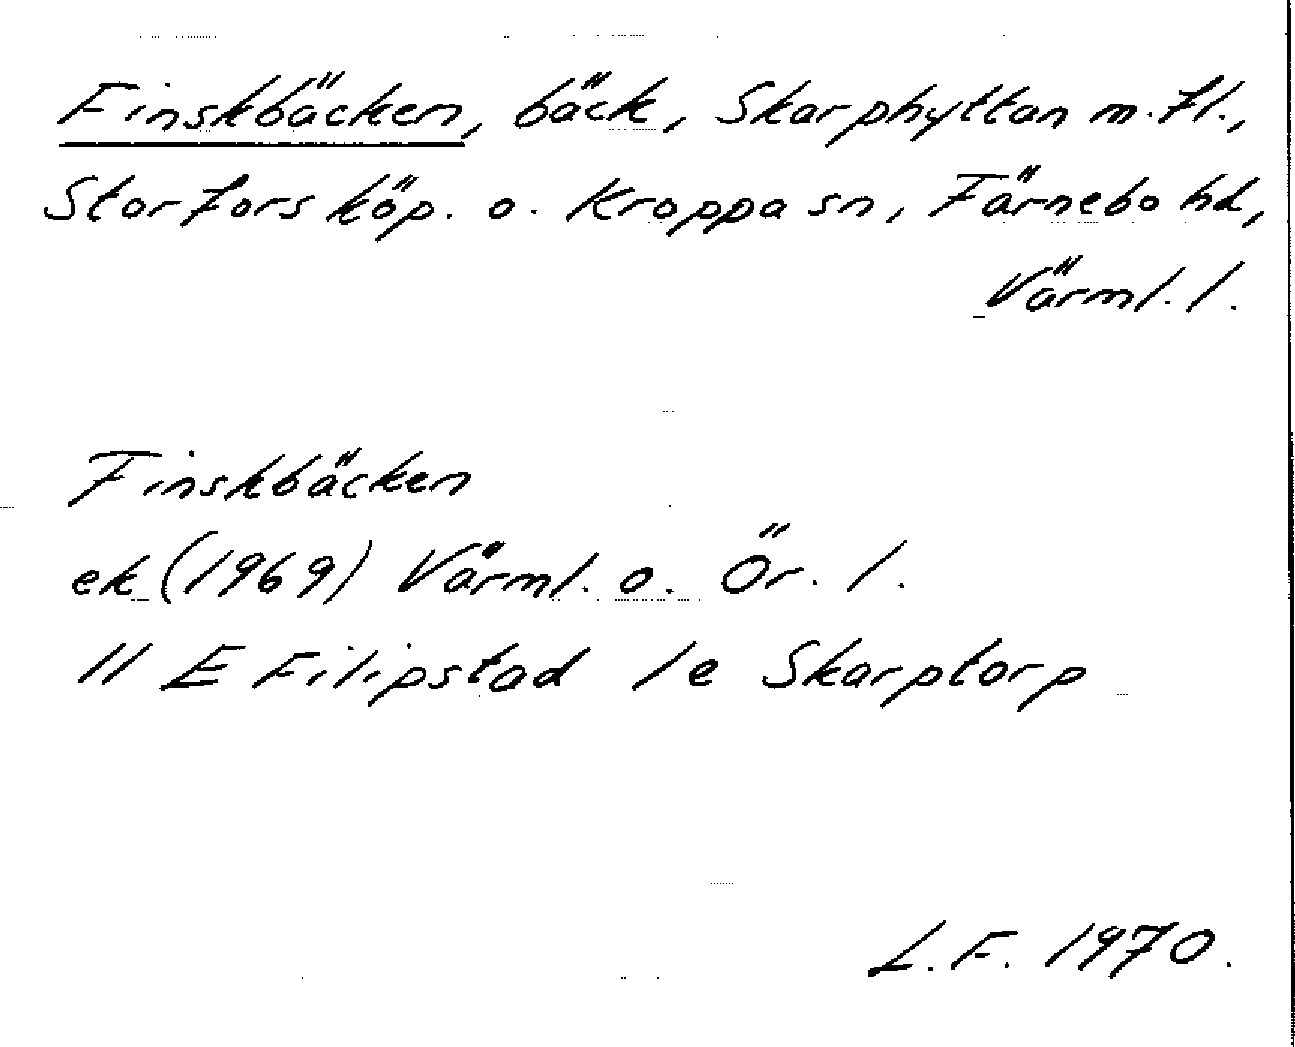 Finskbäcken, bäck, Skarphyttan m.fl.,
Storfors köp. o. Kroppa sn, Färnebo hd,
Värml. l.
Finskbäcken
ek (1969) Värml. o. Ör. l.
11 E Filipstad 1e Skarptorp
L.F. 1970.